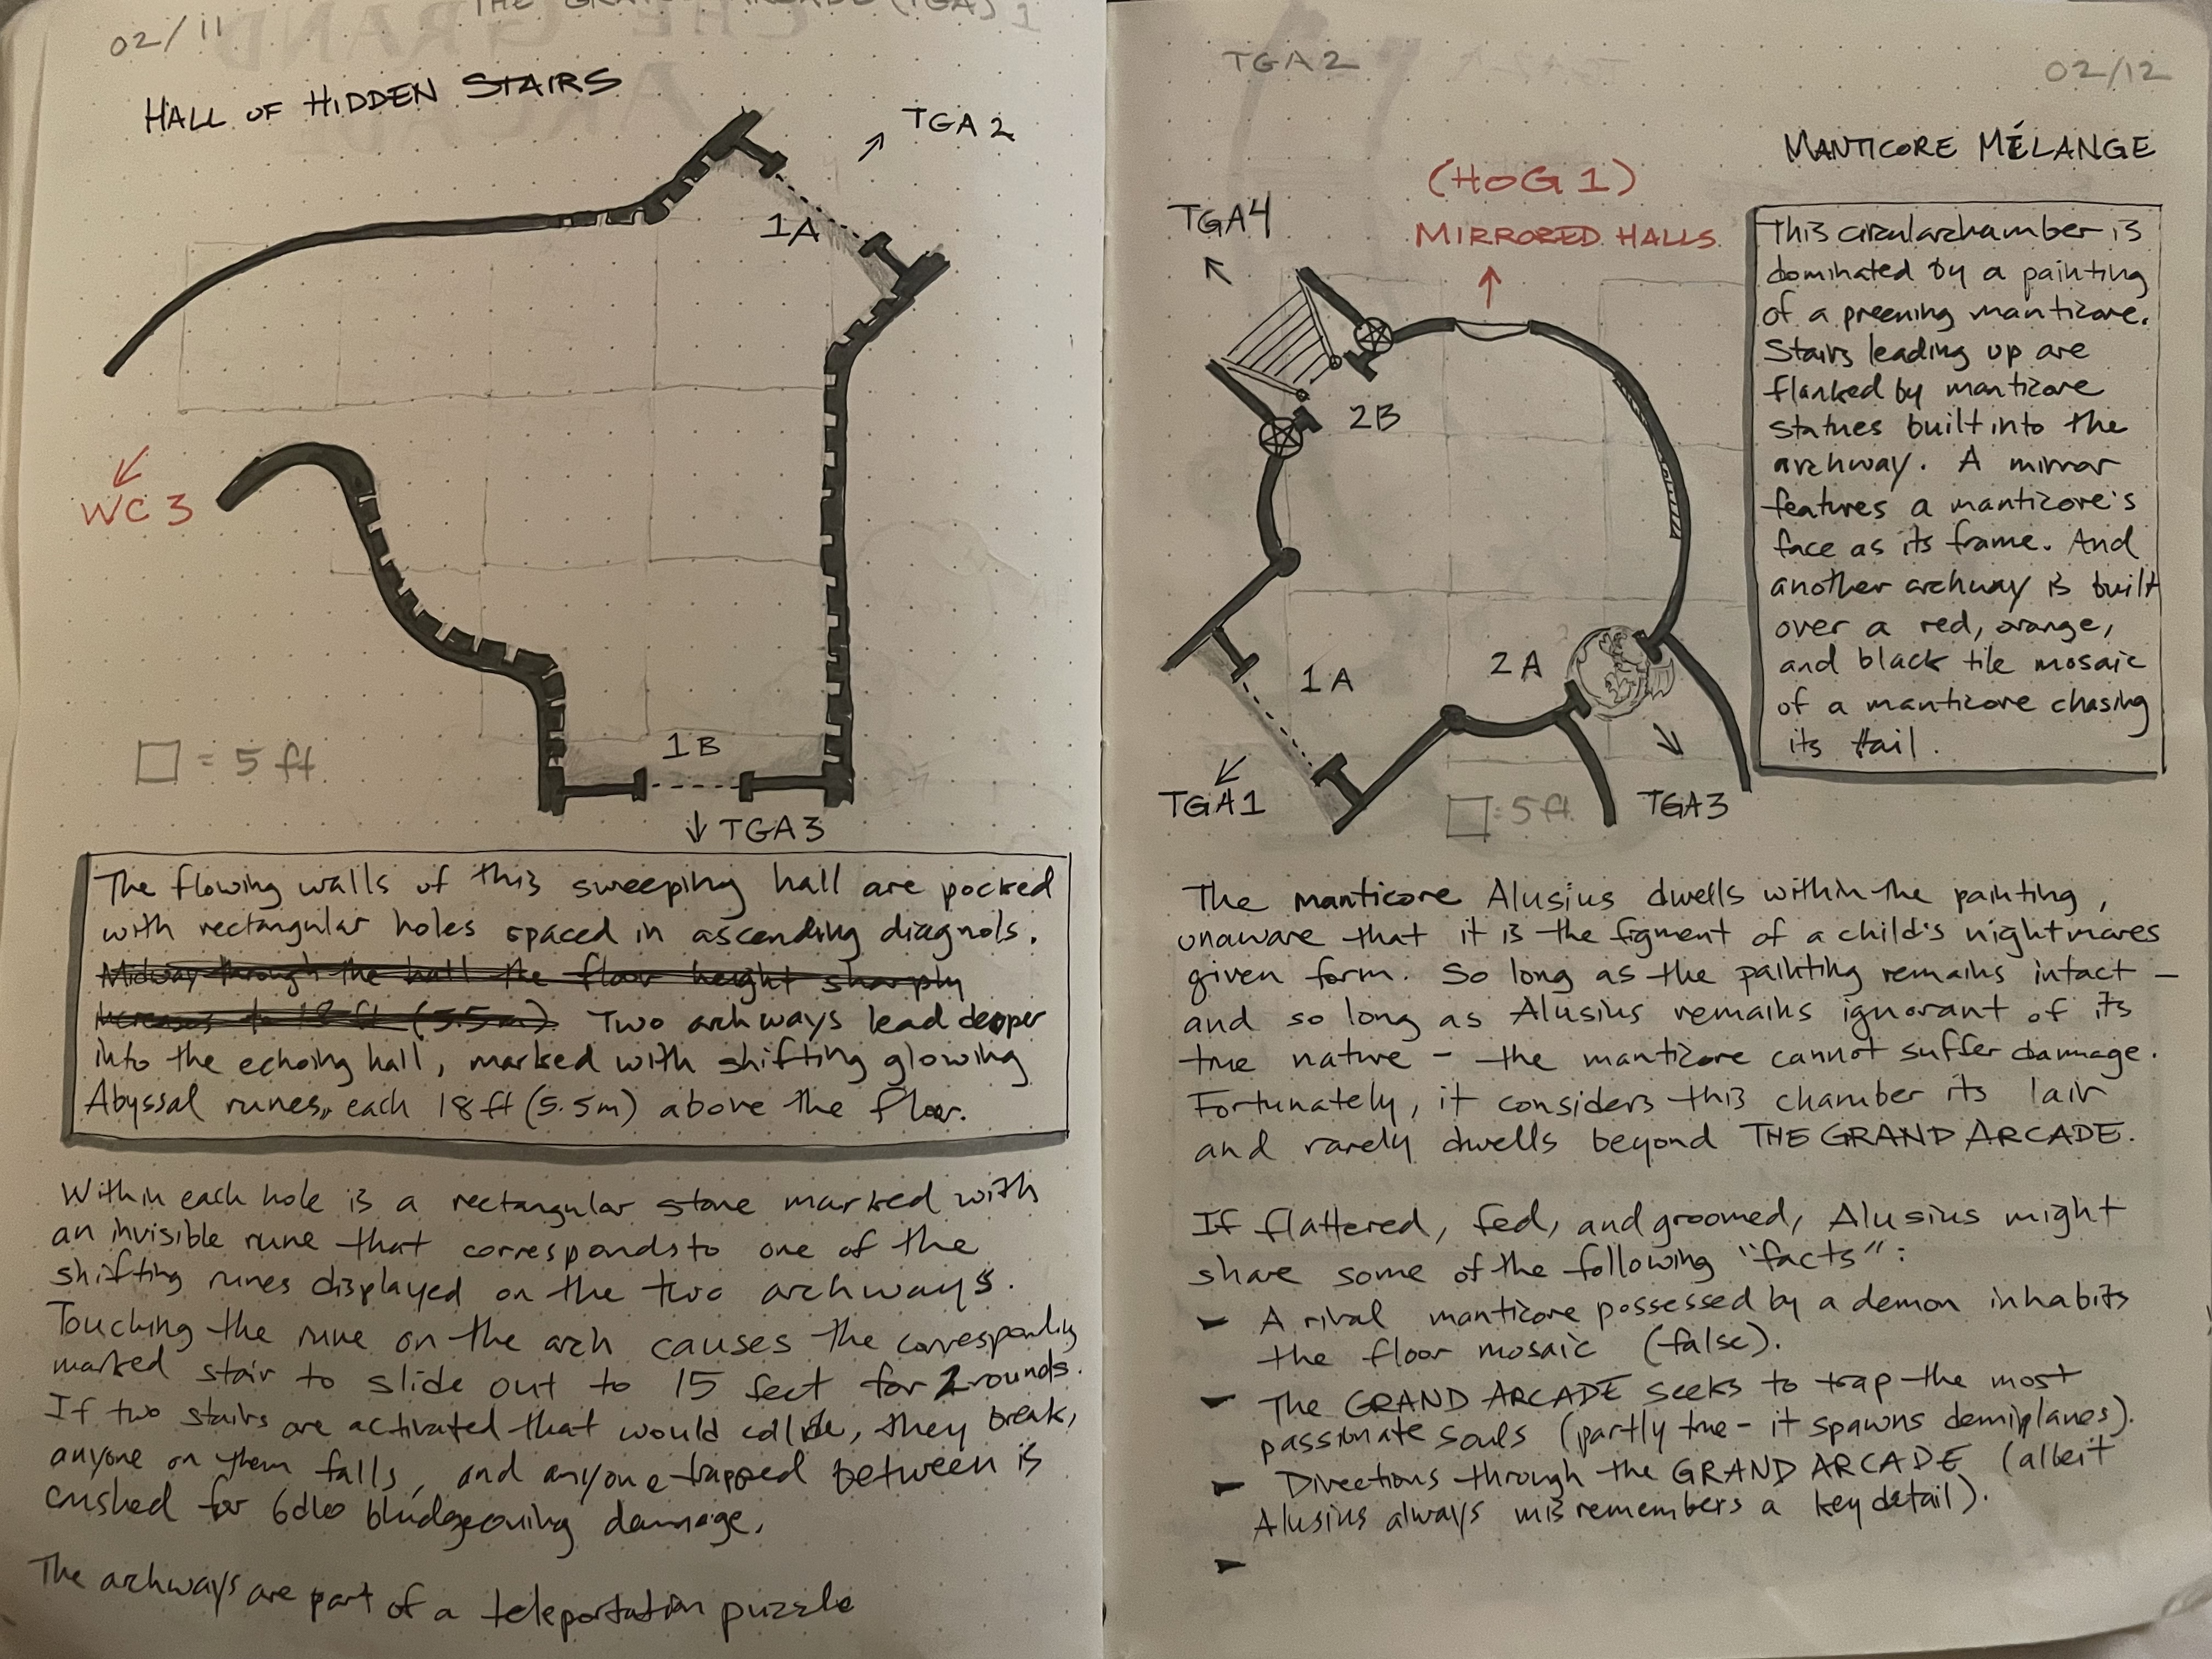 02/11
THE GRAND ARCADE (TGA) 1
HALL OF HIDDEN STAIRS
TGA 2
1A
WC 3
1B
□ = 5 ft
TGA3
The flowing walls of this sweeping hall are pocked
with rectangular holes spaced in ascending diagnols.
Midway through the hall the floor height sharply
increases to 18 ft (5.5m). Two archways lead deeper
into the echoing hall, marked with shifting glowing
Abyssal runes, each 18ft (5.5m) above the floor.
Within each hole is a rectangular stone marked with
an invisible rune that corresponds to one of the
shifting runes displayed on the two archways.
Touching the rune on the arch causes the corresponding
marked stair to slide out to 15 feet for 2 rounds.
If two stairs are activated that would collide, they break,
anyone on them falls, and anyone trapped between is
crushed for 6d10 bludgeoning damage.
The archways are part of a teleportation puzzle
TGA2
02/12
MANTICORE MÉLANGE
(HOG 1)
MIRRORED HALLS
TGA4
2B
1A
2A
TGA1
□ = 5 ft.
TGA3
This circular chamber is
dominated by a painting
of a preening manticore.
Stairs leading up are
flanked by manticore
statues built into the
archway. A mirror
features a manticore's
face as its frame. And
another archway is built
over a red, orange,
and black tile mosaic
of a manticore chasing
its tail.
The manticore Alusius dwells within the painting,
unaware that it is the figment of a child's nightmares
given form. So long as the painting remains intact –
and so long as Alusius remains ignorant of its
true nature – the manticore cannot suffer damage.
Fortunately, it considers this chamber its lair
and rarely dwells beyond THE GRAND ARCADE.
If flattered, fed, and groomed, Alusius might
share some of the following "facts":
– A rival manticore possessed by a demon inhabits
the floor mosaic (false).
– The GRAND ARCADE seeks to trap the most
passionate souls (partly true – it spawns demiplanes).
– Directions through the GRAND ARCADE (albeit
Alusius always misremembers a key detail).
–